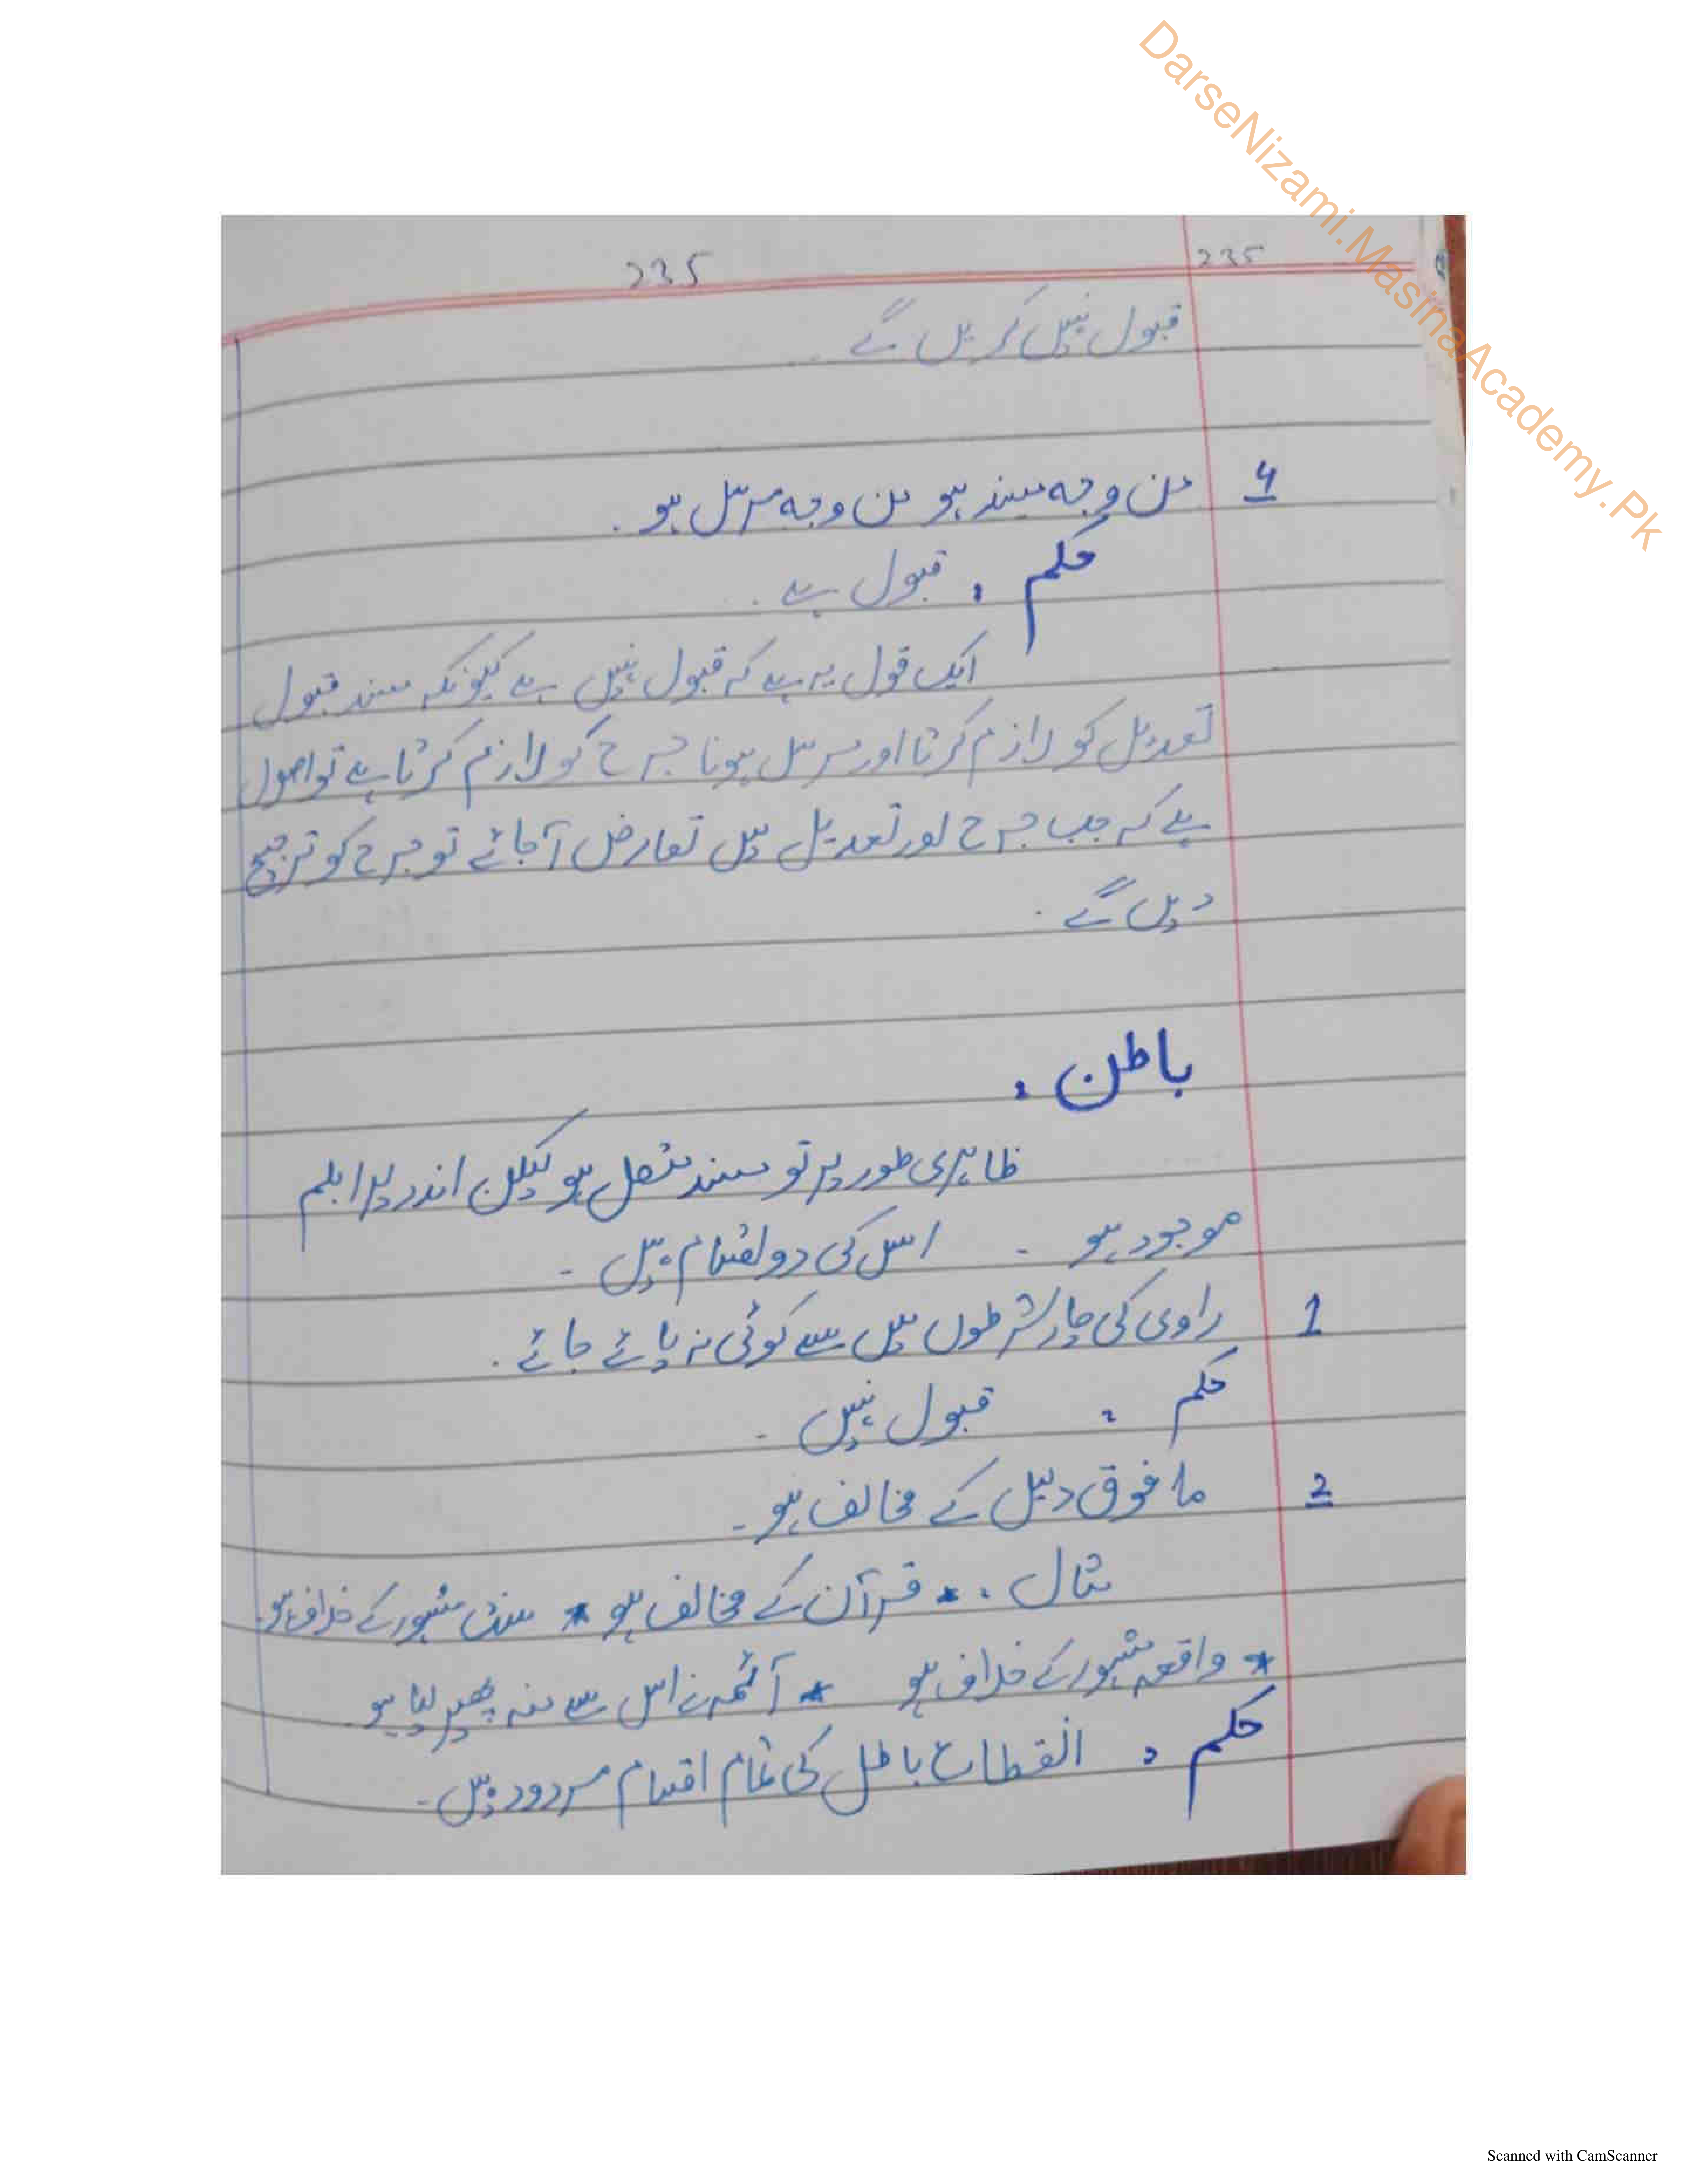 DarseNizami.MasihaAcademy.Pk
235 235
قبول نہیں کریں گے
4 من وجہ مسند ہو من وجہ مرسل ہو .
حکم : قبول ہے .
ایک قول یہ ہے کہ قبول نہیں ہے کیونکہ مسند قبول
تعدیل کو لازم کرتا اور مرسل ہونا جرح کو لازم کرتا ہے تو اصول
ہے کہ جب جرح اور تعدیل میں تعارض آجائے تو جرح کو ترجیح
دیں گے .
باطن :
ظاہری طور پر تو سند متصل ہو لیکن اندر پرابلم
موجود ہو - اس کی دو اقسام ہیں -
1 راوی کی چار شرطوں میں سے کوئی نہ پائے جائے .
حکم : قبول نہیں -
2 ما فوق دلیل کے مخالف ہو -
مثال : * قرآن کے مخالف ہو * سنت مشہور کے خلاف ہو
* واقعہ مشہور کے خلاف ہو * آئمہ نے اس سے منہ پھیر لیا ہو
حکم : انقطاع باطل کی تمام اقسام مردود ہیں -
Scanned with CamScanner